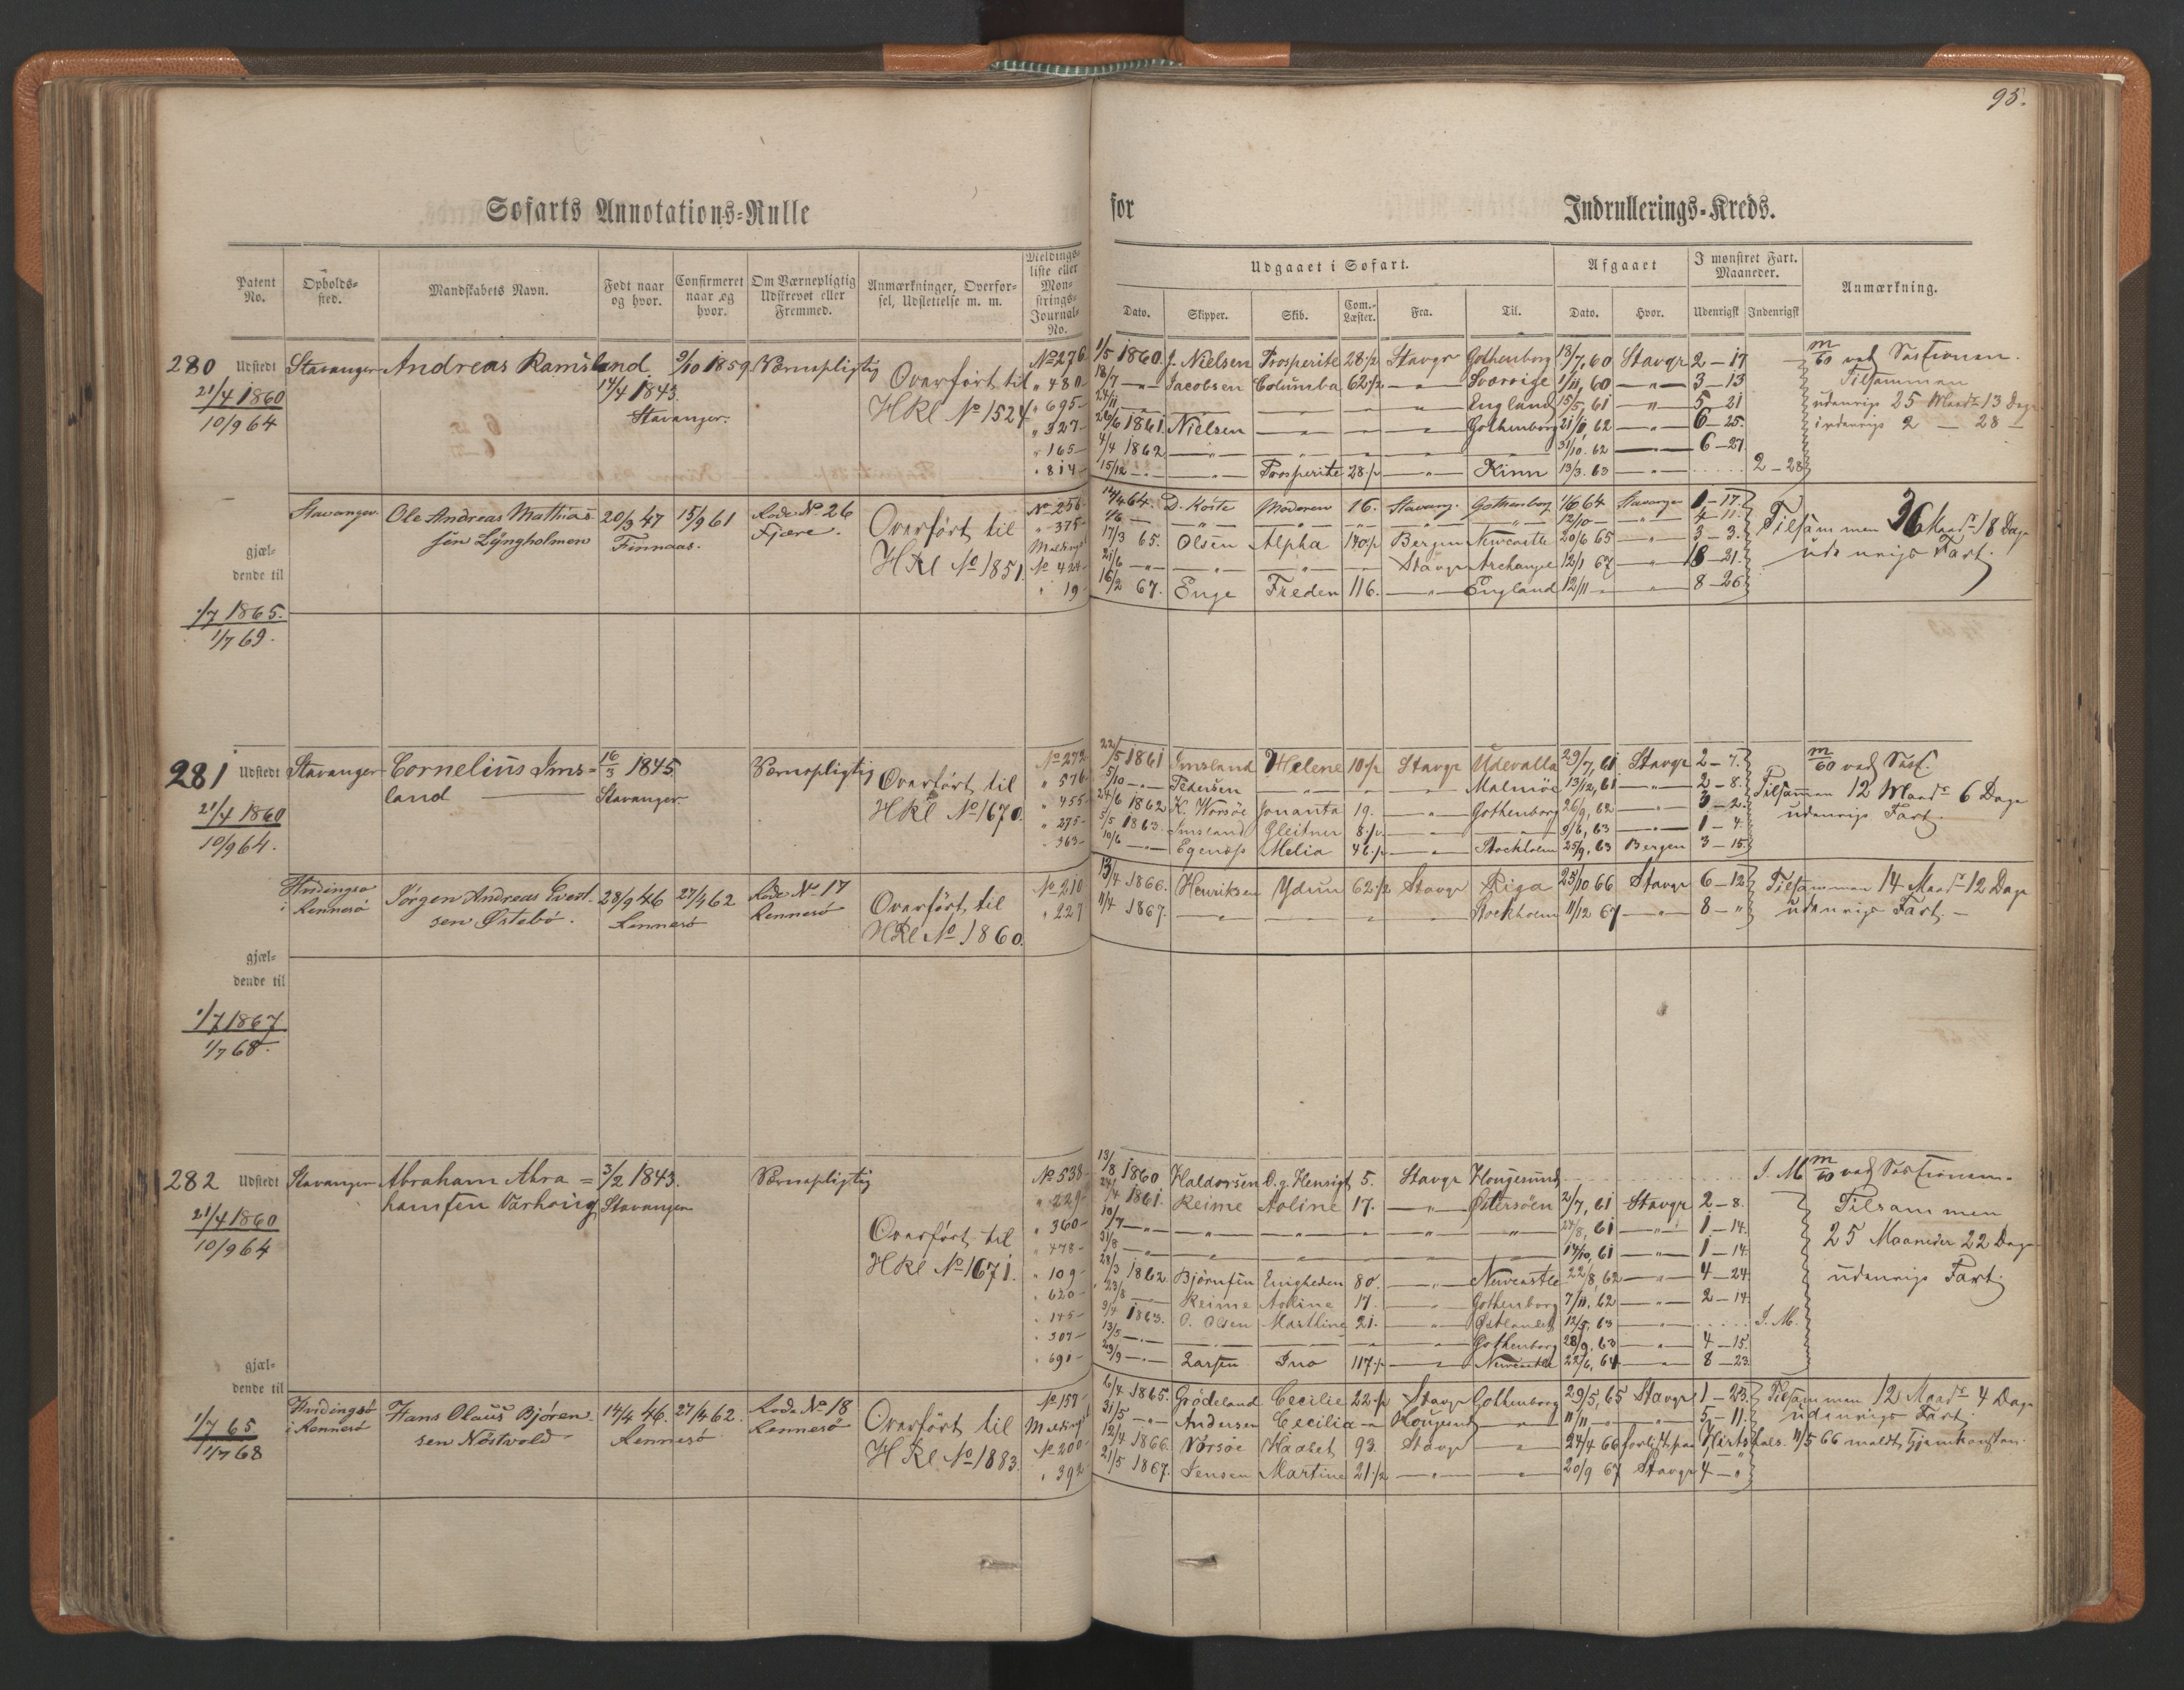 95.
Søfarts Annotations=Rulle for Indrullerings=Kreds.
Patent No. Opholds-sted. Mandskabets Navn. Født naar og hvor. Confirmeret naar og hvor. Om Værnepligtig Udskrevet eller Fremmed. Anmærkninger, Overfør-sel, Udslettelse m. m. Meldings-liste eller Mon-strings-Journal-No.
Udgaaet i Søfart. Afgaaet I mønstret Fart. Maaneder. Anmærkning.
Dato. Skipper. Skib. Com.-Læster. Fra. Til. Dato. Hvor. Udenrigsk Indenrigsk
280 Udstedt 21/4 1860 10/9 64
Stavanger Andreas Ramsland 14/4 1843 Stavanger. 9/10 1859 Værnepligtig Overført til HRl No 1524
No 276 1/5 1860 J. Nielsen Prosperite 28 1/2 Stavgr Gothenborg 18/7, 60 Stavgr 2 – 17
" 480 – 18/7 – " – Jacobsen Columba 62 1/2 – " – Sverrige 1/11, 60 – " – 3 – 13
" 695 – 24/11 England 15/5, 61 – " – 5 – 21
" 327 – 20/6 1861 Nielsen – " – Gothenborg 21/11 62 – " – 6 – 25
" 165 – 4/4 1862 – " – 31/10. 62 – " – 6 – 27
" 814 – 15/12 – " – Prosperite 28 1/2 – " – Kinn 13/3. 63 – " – 2 – 28
Tilsammen
udenrigs 25 Maadr 13 Dage
indenrigs 2 – 28 –
gjæl-
dende til
1/7 1865.
1/7 69.
Stavanger Ole Andreas Mathias
sen Lyngholmen 20/3 47 Finnaas. 15/9 61 Rode No 26 Fjære. Overført til HRl No 1851.
No 256 – 14/4 64. D. Köste Moderen 16. Stavang. Gothenborg 1/6 64 Stavanger 1 – 17.
" 375 – 1/6 – " – 12/10 – " – 4 – 11.
17/3 65. Olsen Alpha 140 1/2 Bergen Newcastle 20/6 65 – " – 3 – 3.
No 424 – 21/6 – " – Stavgr Archangel 12/1 67 – " – 18 – 21.
" 19 – 16/2 67. Enge Freden 116. – " – England 12/11 – " – 8 – 26
Tilsammen 36 Maadr 18 Dage
udenrigs Fart.
281 Udstedt 21/4 1860 10/9 64.
Stavanger Cornelius Ims=
land 16/3 1845 Stavanger. Værnepligtig Overført til HRl No 1670.
No 272 22/5 1861 Imsland Helene 10 1/2 Stavgr Udevalla 29/7, 61 Stavgr 2 – 7.
" 576 – 5/10 – " – Pedersen – " – Malmöe 13/12, 61 – " – 2 – 8.
" 455 – 24/6 1862 K. Worsöe Jonanta 19. – " – Gothenborg 26/9, 62 – " – 3 – 2.
" 275 – 5/5 1863. Imsland Gleitner 8 1/2 – " – 9/6, 63 – " – 1 – 4.
" 363 – 10/6 – " – Egenæs Melia 46 1/2 – " – Stockholm 25/9. 63 Bergen 3 – 15
Tilsammen 12 Maadr 6 Dage
udenrigs Fart.
Hvidingsø
i Rennesö Jörgen Andreas Evert
sen Østebö. 28/9 46 Rennesö 27/4 62 Rode No 17 Rennesö Overført til HRl No 1860.
No 210 13/4 1866. Henriksen Ydun 62 1/2 Stavgr Riga 25/10 66 Stavgr 6 – 12
" 227 11/4 1867. – " – Stockholm 11/12 67 – " – 8 – "
Tilsammen 14 Maadr 12 Dage
udenrigs Fart. –
gjæl-
dende til
1/7 1867
1/7 68.
282 Udstedt 21/4 1860 10/9 64
Stavanger Abraham Abra=
hamsen Varhoug 3/2 1843. Stavanger Værnepligtig Overført til HRl No 1671.
No 538 – 13/8 1860 Haldorsen D. g. Hensigt 5. Stavgr Hougesund I. M.
" 229 – 24/4 1861. Reime Aoline 17. – " – Østersöen 2/7, 61 Stavgr 2 – 8.
" 360 – 10/7 – " – 27/8, 61 – " – 1 – 14.
" 478 – 31/8 – " – 14/10, 61 – " – 1 – 14.
" 109 – 28/3 1862 Björnsen Enigheden 80. – " – Newcastle 22/8, 62 – " – 4 – 24.
" 620 – 23/8 – " – Reime Aoline 17. – " – Gothenborg 7/11, 62 – " – 2 – 14.
" 145 – 9/4 1863. O. Olsen Marthine 21. – " – Østlandet 12/5, 63 – " – I. M.
" 307 – 13/5 – " – Gothenborg 28/9. 63 – " – 4 – 15.
" 691 – 29/9 – " – Larsen Ino 117 1/2 – " – Newcastle 22/6, 64 – " – 8 – 23.
Tilsammen
25 Maaneder 22 Dage
udenrigs Fart.
gjæl-
dende til
1/7 65
1/7 68
Hvidingsö
i Rennesö Hans Olaus Björen
sen Nöstvold 14/4 46. Rennesö 27/4 62. Rode No 18 Rennesö Overført til HRl No 1883.
No 157 – 6/4 1865. Grödeland Cecilie 22 1/2 Stavgr Gothenborg 29/5, 65 Stavgr 1 – 23.
31/5 – " – Andersen Cecilia – " – Hougesund – " – 11/11 – " – 5 – 11.
No 200 – 12/4 1866. Vorsöe Haabet 93. Stavgr – " – 24/4 66 forlist paa Hirtshals. 11/5 66 meldt hjemkomsten.
" 392 – 21/5 1867. Jensen Martine 21 1/2 – " – 20/9 67 Stavgr 4 – "
Tilsammen 12 Maadr 4 Dage
udenrigs Fart